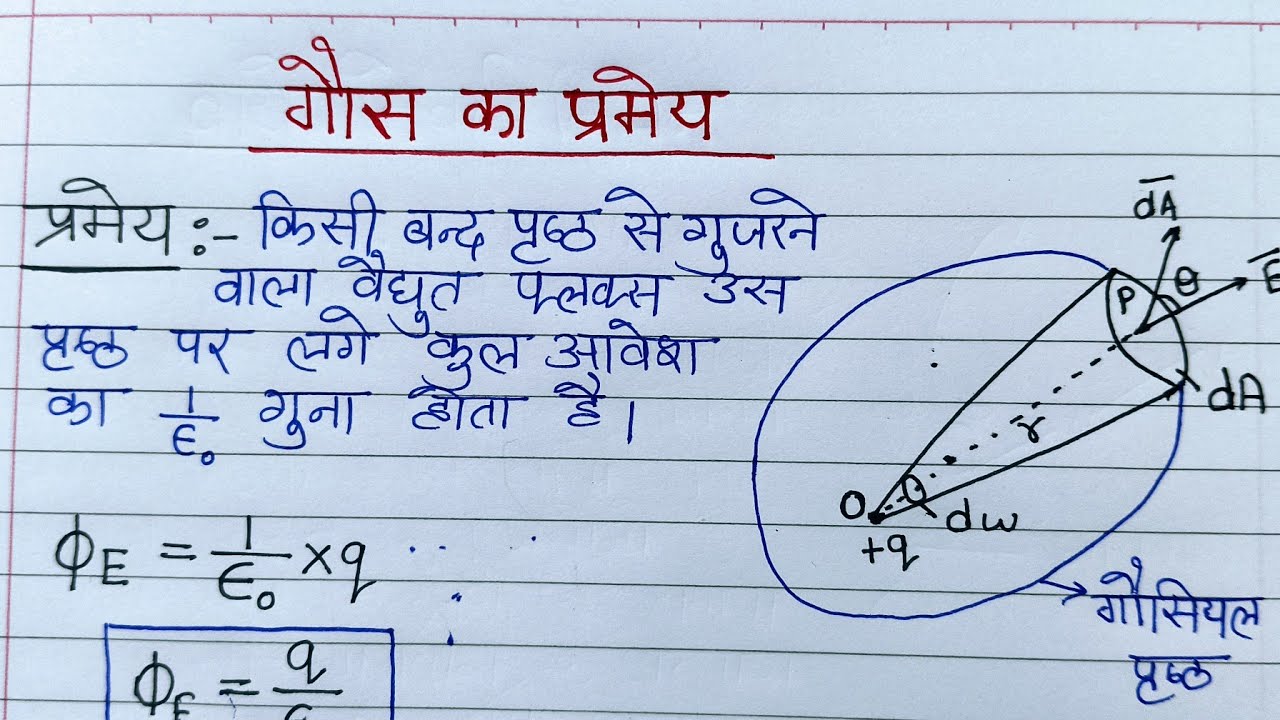 गौस का प्रमेय
प्रमेय :- किसी बन्द पृष्ठ से गुजरने
वाला वैद्युत फ्लक्स उस
पृष्ठ पर लगे कुल आवेश
का 1/ϵ₀ गुना होता है।
ϕE = 1/ϵ₀ × q
ϕE = q
dA
E
θ
P
dA
r
O
dω
+q
गौसियल
पृष्ठ